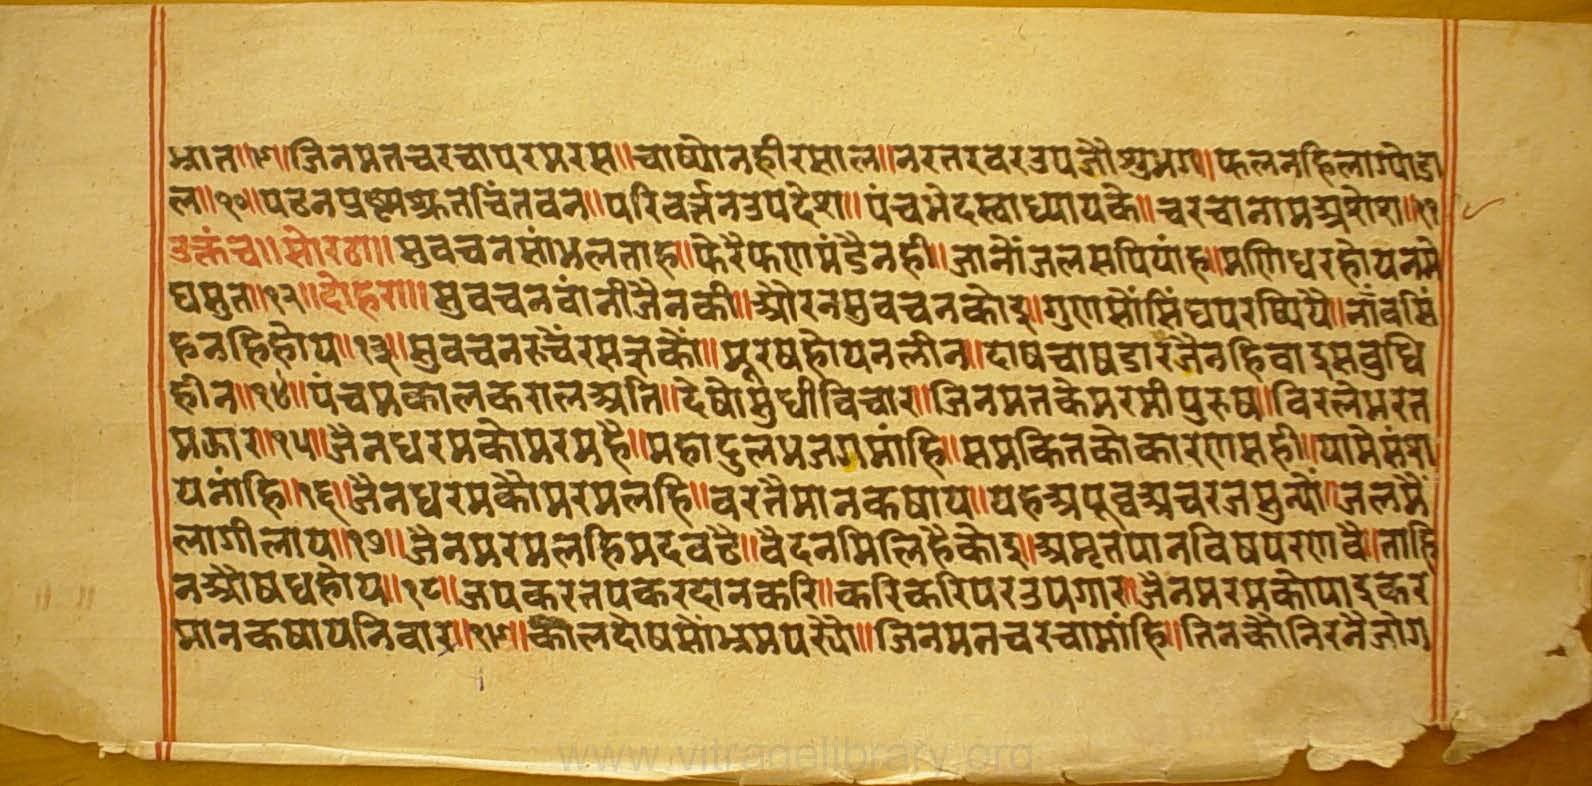 भ्रात॥९॥जिनमतचरचापरमरस॥चाष्योनहीरसाल॥नरतरवरउपजौशुभग॥फलनहिलाग्योडा
ल॥१०॥पठनप्रष्णश्रुतचिंतवन॥परिवर्त्तनउपदेश॥पंचभेदस्वाध्यायके॥चरचानामअशेश॥११
उक्तंच॥सोरठा॥सुवचनसांभलताह॥फेरैफणमंडैनही॥जानोंजलसपियांह॥मणिधरहोयनमे
घसुत॥१२॥दोहरा॥सुवचनवांनीजैनकी॥औरनसुवचनकोइ॥गुणसौंसिंघपरष्यियै॥नांवसिं
हनहिहोय॥१३॥सुवचनरुचैंरसज्ञकौं॥मूरषहोयनलीन॥दाषचाषडारंजैनहिवाइसबुधि
हीन॥१४॥पंचमकालकरालअति॥देषोसुधीविचार॥जिनमतकेमरमीपुरुष॥विरलेभरत
मऊार॥१५॥जैनधरमकोमरमहै॥महादुलभजगमांहि॥समकितकोकारणसही॥यामेसंश
यनांहि॥१६॥जैनधरमकौमरमलहि॥वरतैमानकषाय॥यहअपूवअचरजसुन्यों॥जलमैं
लागीलाय॥१७॥जैनमरमलहिमदवढै॥वैदनमिलिहैकोइ॥अमृतपानविषपरणवै॥ताहि
नऔषधहोय॥१८॥जपकरतपकरदानकरि॥करिकरिपरउपगार॥जैनमरमकोपाइकर
मानकषायनिवार॥१९॥कालदोषसौंभ्रमपर्यो॥जिनमतचरचामांहि॥तिनकौनिरनैजोग
www.vitragelibrary.org